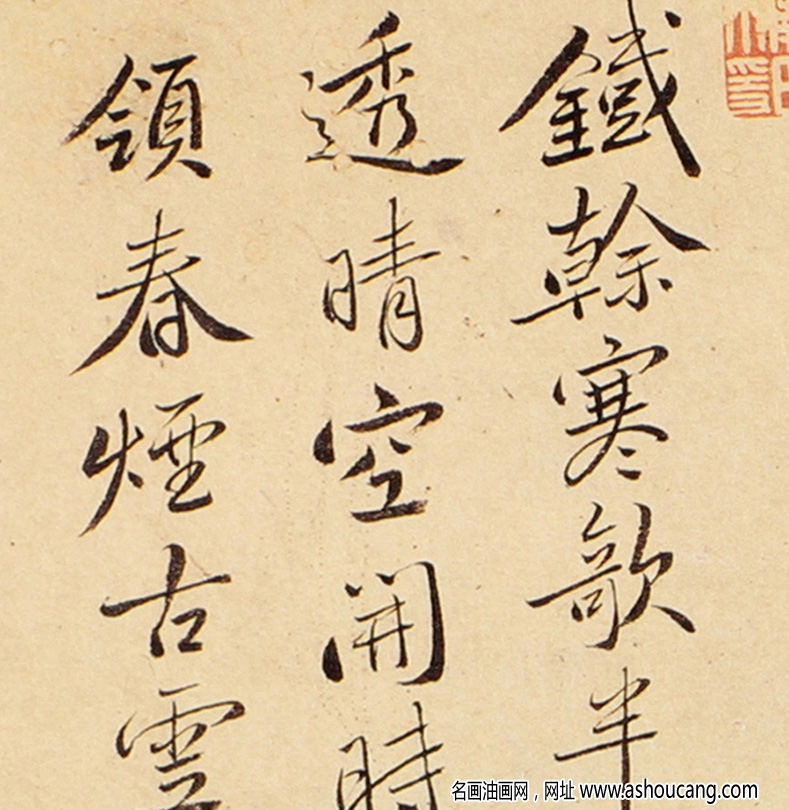 鐵榦寒欹半
透晴空開時
領春煙古雲
名画油画网，网址 www.ashoucang.com